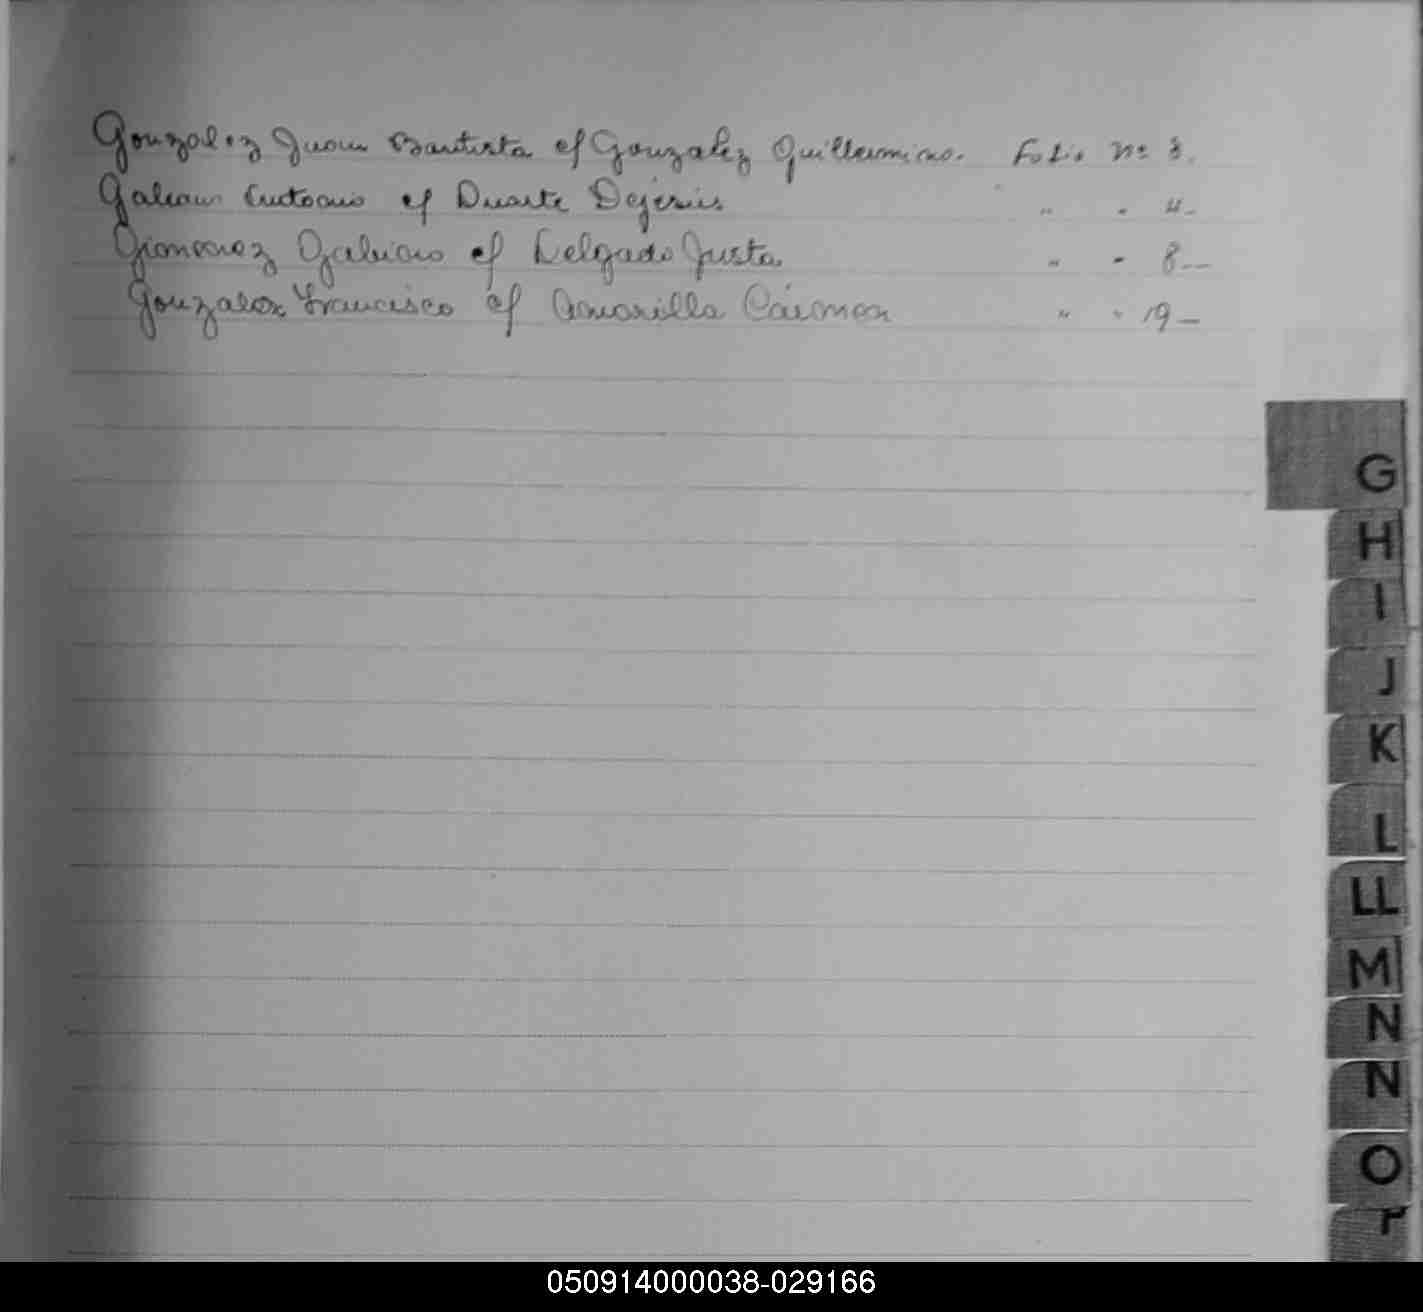 Gonzalez Juan Bautista cf Gonzalez Guillermina. Folio Nº 3.
Galeano cf Duarte Dejesús " " 4-
Gimenez Gabino cf Delgado Justa " " 8-
Gonzalez Francisco cf Amarilla Cármen " " 19-
G
H
I
J
K
L
LL
M
N
N
O
P
050914000038-029166